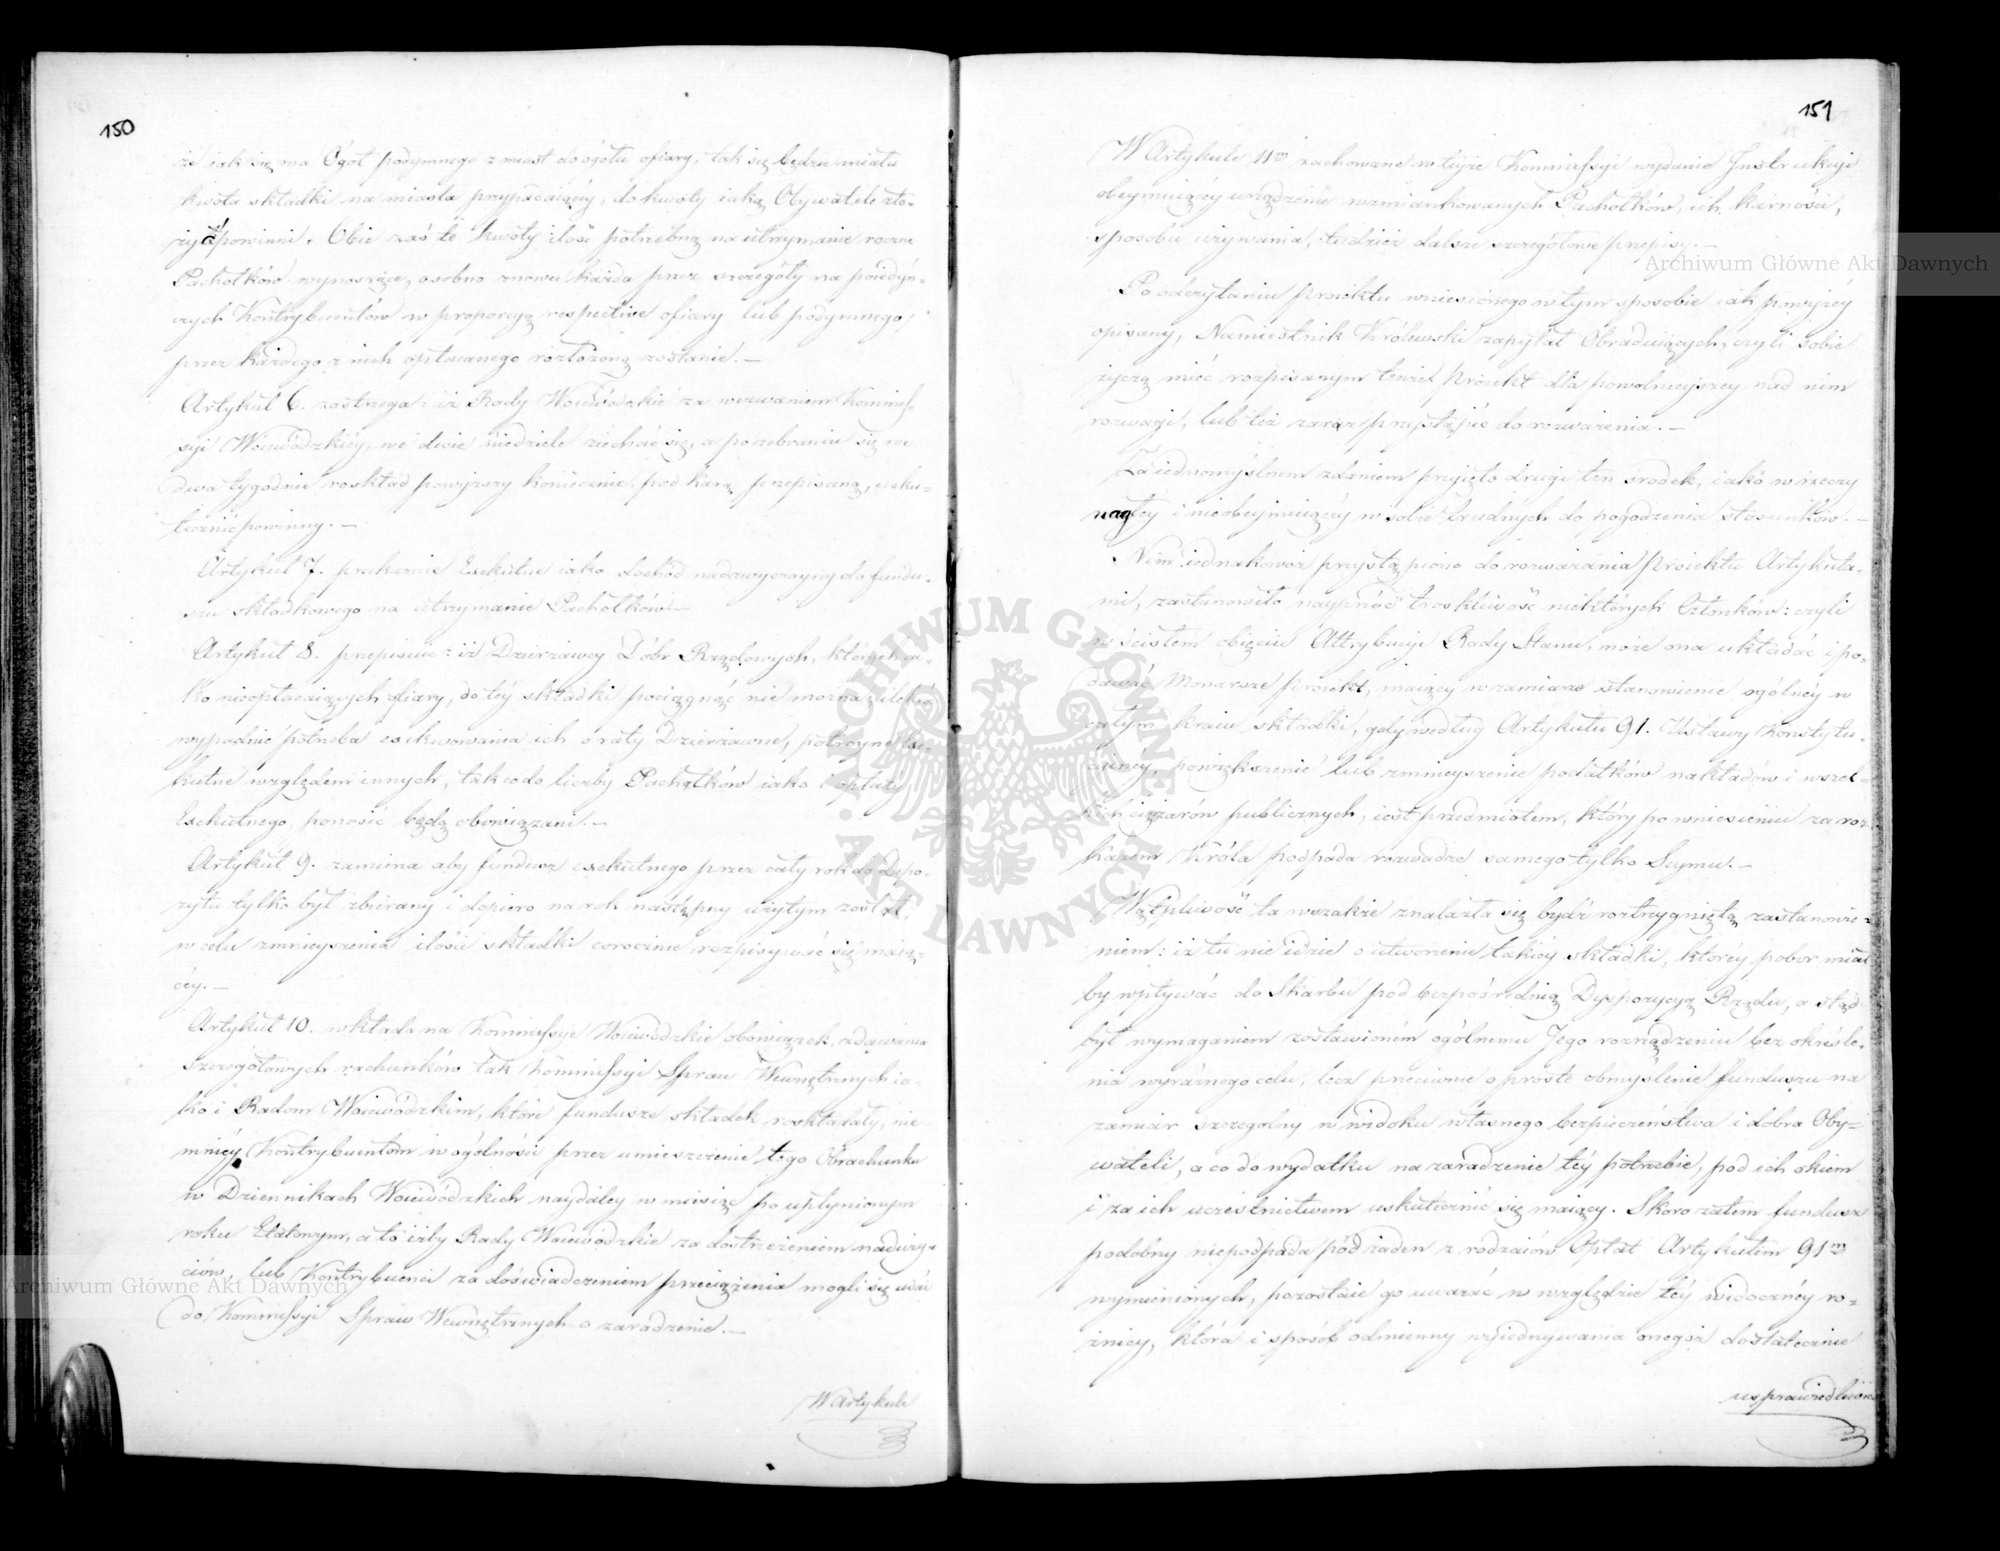 150
że iak się ma Ogół podymnego z miast do ogółu ofiary, tak się będzie miała
kwota składki na miasta przypadaiącéy, do kwoty iaką Obywatele zło-
żyć powinni. Obie zaś te kwoty ilość potrzebną na utrzymanie roczne
Pachołków wynoszące, osobno znowu każda przez szczegóły na poiedyń-
czych Kontrybuentów w proporcyą respective ofiary lub podymnego,
przez każdego z nich opłacanego rozłożoną zostanie. —
Artykuł 6. zastrzega: iż Rady Woiewódzkie za wezwaniem Kommis-
syi Woiewódzkiéy, we dwie niedziele ziechać się, a po zebraniu się we
dwa tygodnie rozkład powyższy koniecznie pod karą przepisaną, usku-
tecznić powinny. —
Artykuł 7. przekazuie Exekutne iako dochód nadzwyczayny do fundu-
szu składkowego na utrzymanie Pachołków. —
Artykuł 8. przepisuie: iż Dzierżawcy Dóbr Rządowych, których ia-
ko nieopłacaiących ofiary, do téy składki pociągnąć nie można, ilekroć
wypadnie potrzeba exekwowania ich o raty Dzierżawne, potróyne Exe-
kutne względem innych, tak co do liczby Pachołków iako i opłaty
Exekutnego, ponosić będą obowiązani. —
Artykuł 9. zamierza aby fundusz exekutnego przez cały rok do Depo-
zytu tylko był zbierany i dopiero na rok następny użytym został,
w celu zmnieyszenia ilości składki corocznie rozpisywać się maią-
céy. —
Artykuł 10. wkłada na Kommissye Woiewódzkie obowiązek zdawania
szczegółowych rachunków tak Kommissyi Spraw Wewnętrznych ia-
ko i Radom Woiewódzkim, które fundusze składek rozkładały, nie
mniéy Kontrybuentom w ogólności przez umieszczenie tego Obrachunku
w Dziennikach Woiewódzkich naydaléy w miesiąc po upłynionym
roku Etatowym, a to iżby Rady Woiewódzkie za dostrzeżeniem nadużyc-
ciów, lub Kontrybuenci za doświadczeniem przeciążenia mogli się udać
do Kommissyi Spraw Wewnętrznych o zaradzenie. —
W Artykule
151
W Artykule 11m zachowane w teyże Kommissyi wydanie Instrukcyi
obeymuiącéy urządzenie wzmiankowanych Pachołków, ich karności,
sposobu używania, tudzież dalsze szczegółowe przepisy. —
Po odczytaniu proiektu wniesionego w tym sposobie iak powyżéy
opisany, Namiestnik Królewski zapytał Obraduiących, czyli sobie
życzą mieć rozpisanym tenże Proiekt dla powolnieyszey nad nim
rozwagi, lub też zaraz przystąpić do rozważenia. —
Za iednomyślnem zdaniem przyięto drugi ten srodek, iako w rzeczy
nagłéy i nieobeymuiącéy w sobie trudnych do pogodzenia stosunków. —
Nim iednakowoż przystąpiono do rozważania Proiektu Artykuła-
mi, zastanowiło nayprzód troskliwość niektórych Członków: czyli
w ścisłem obięciu Attrybucyi Rady Stanu, może ona układać i po-
dawać Monarsze proiekt, maiący w zamiarze stanowienie ogólnéy w
całym kraiu składki, gdy według Artykułu 91. Ustawy Konstytu-
cyinéy, powiększenie lub zmnieyszenie podatków nakładów i wszel-
kich ciężarów publicznych, iest przedmiotem, który po wniesieniu za roz-
kazem Króla podpada rozwadze samego tylko Seymu. —
Wątpliwość ta wszakże znalazła się bydź roztrzygniętą zastanowie-
niem: iż tu nie idzie o utworzenie takiéy składki, któréy pobor miał
by wpływać do Skarbu pod bezpośrednią Dyspozycyą Rządu, a stąd
był wymaganiem zostawioném ogólnemu Jego rozrządzeniu bez określe-
nia wyraźnego celu, lecz przeciwnie o proste obmyślenie funduszu na
zamiar szczególny w widoku własnego bezpieczeństwa i dobra Oby-
wateli, a co do wydatku na zaradzenie téy potrzebie, pod ich okiem
i za ich uczestnictwem uskutecznić się maiący. Skoro zatem fundusz
podobny niepodpada pód żaden z rodzaiów Opłat Artykułem 91m
wymienionych, pozostaie go uważać w względzie téy widocznéy ró-
żnicy, która i sposób odmienny wyiednywania onegóż dostatecznie
usprawiedliwia
Archiwum Główne Akt Dawnych
Archiwum Główne Akt Dawnych
ARCHIWUM GŁÓWNE AKT DAWNYCH